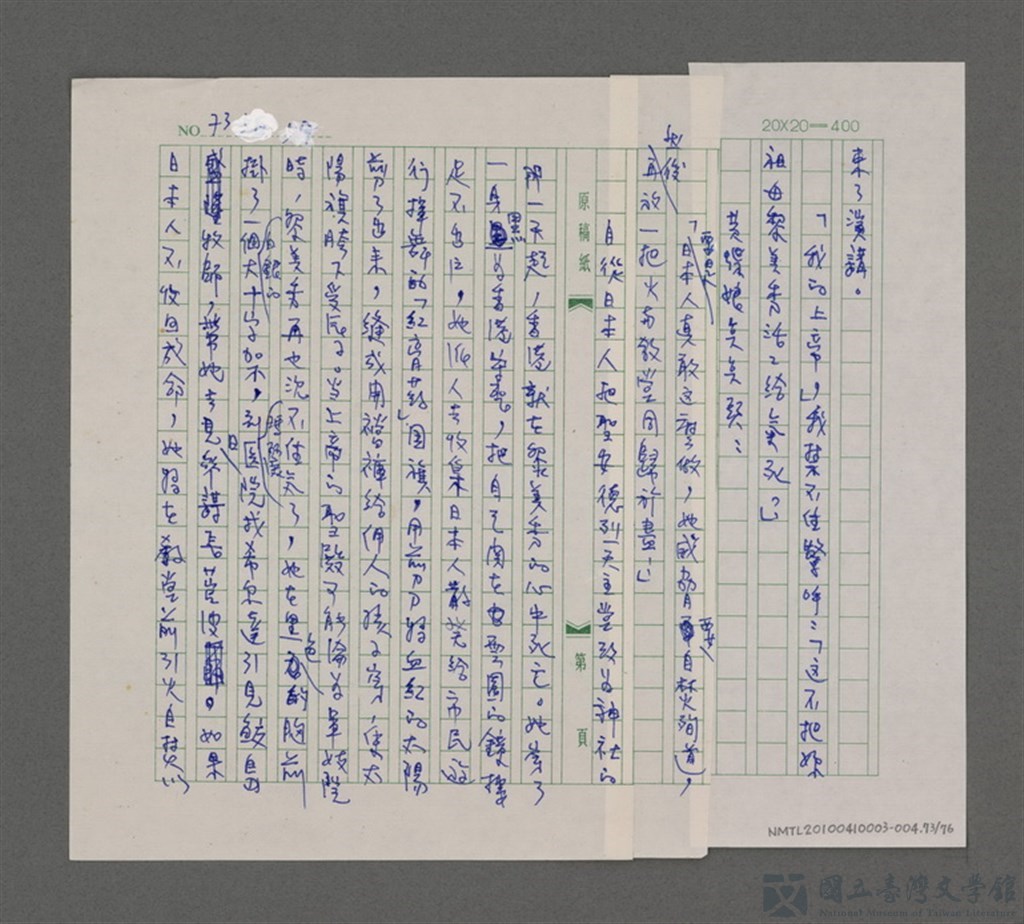 20X20=400
NO 73
來了演講。
「我的上帝」,我禁不住驚呼:「這不把妳
祖母黎美秀活活給氣死?」
黃蝶娘點點頭:
「日本人真敢這麼做,她威脅要自焚殉道,
再放一把火與教堂同歸於盡!」
自從日本人把聖安德列天主堂改為神社的
那一天起,香港就在黎美秀的心中死亡。她穿了
一身黑為香港守喪,把自己關在雲園的鐘樓
足不出戶,她派人去收集日本人散發給市民遊
行揮舞的「紅膏藥」國旗,用剪刀將血紅的太陽
剪了出來,縫成開襠褲給佣人的孩子穿,使太
陽旗胯下受辱。當上帝的聖殿可能淪為軍妓院
時,黎美秀再也沉不住氣了,她在黑色的胸前
掛了一個白銀的大十字架,到醫院找希
牧師,帶她去見參謀長。如果
日本人不收回成命,她將在教堂前引火自焚以
原稿紙
第 頁
NMTL20100410003-004.73/76
國立臺灣文學館
National Museum of Taiwan Literature